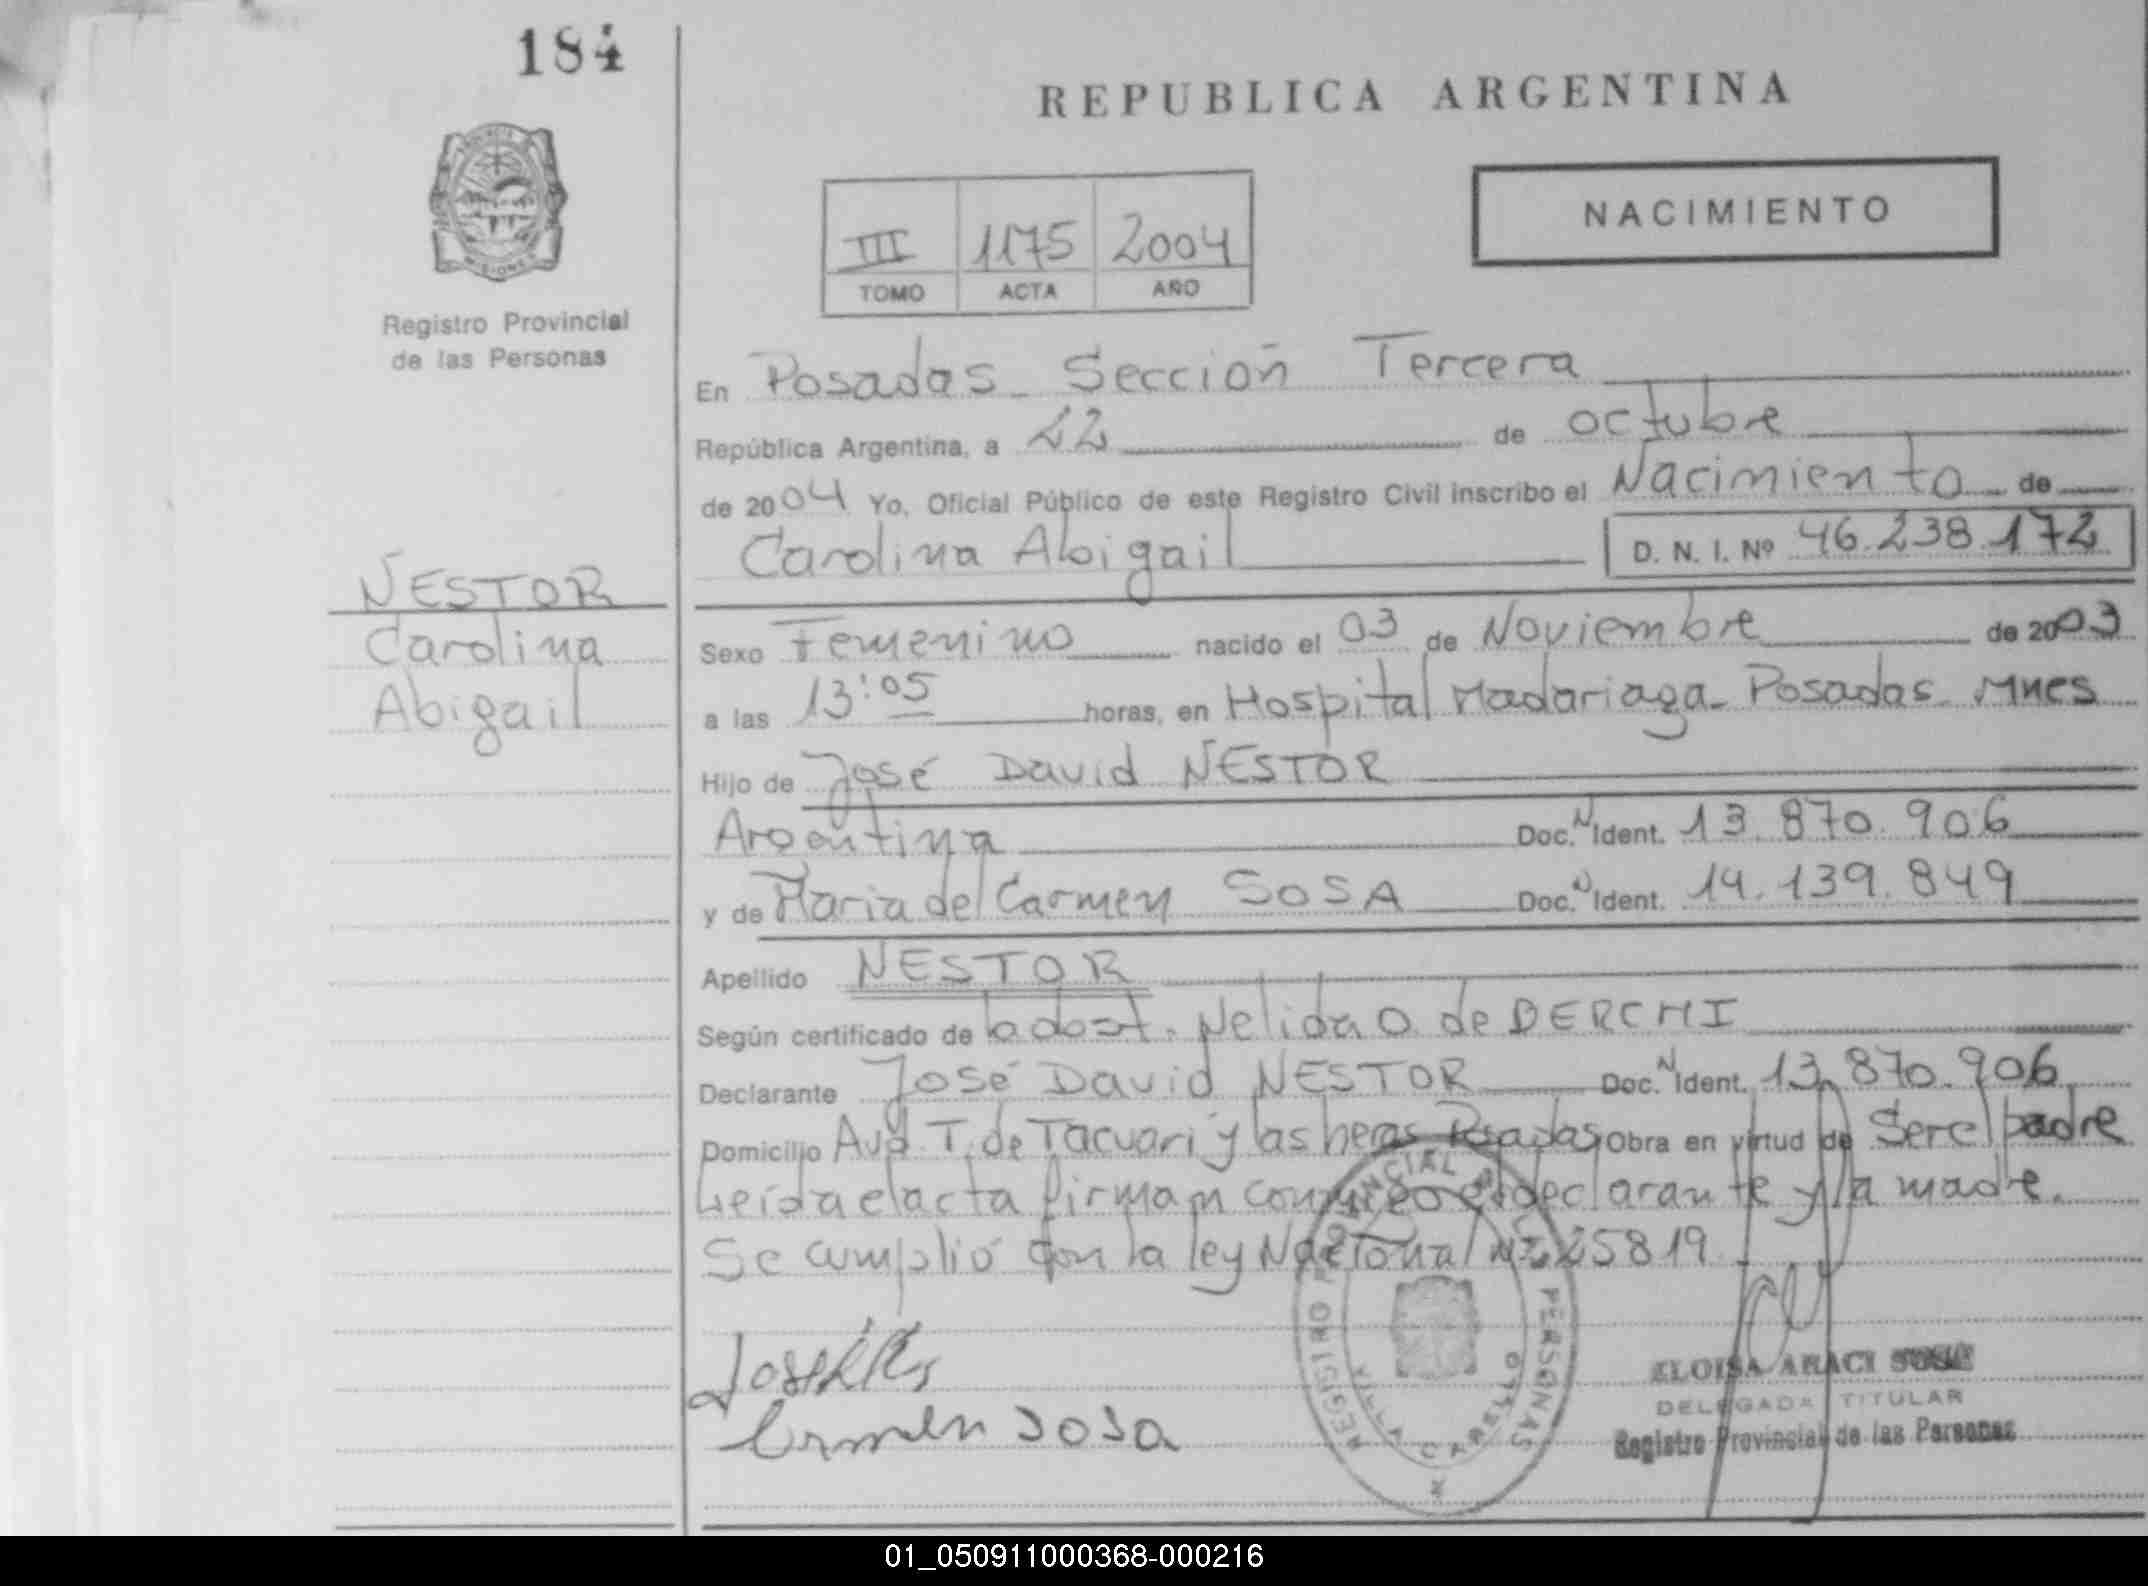 184
REPUBLICA ARGENTINA
PROVINCIA
MISIONES
Registro Provincial
de las Personas
III 1175 2004
TOMO ACTA AÑO
NACIMIENTO
En Posadas - Sección Tercera
República Argentina, a 22 de octubre
de 2004 Yo, Oficial Público de este Registro Civil inscribo el Nacimiento de
Carolina Abigail D. N. I. Nº 46.238.172
NESTOR
Carolina
Abigail
Sexo Femenino nacido el 03 de Noviembre de 2003
a las 13:05 horas, en Hospital Madariaga - Posadas - Mnes
Hijo de José David NESTOR
Argentina Doc. N Ident. 13.870.906
y de Maria del Carmen SOSA Doc. N Ident. 14.139.849
Apellido NESTOR
Según certificado de la obst. Nelida O. de DERCHI
Declarante José David NESTOR Doc. N Ident. 13.870.906
Domicilio Avd. T. de Tacuari y las heras Posadas Obra en virtud de Ser el padre
Leída el acta firman conmigo el declarante y la madre.
Se cumplió con la ley Nacional Nº 25819
REGISTRO PROVINCIAL PERSONAS
VILLA CABELLO
Carmen Sosa
ELOISA ARACI SOSA
DELEGADA TITULAR
Registro Provincial de las Personas
01_050911000368-000216